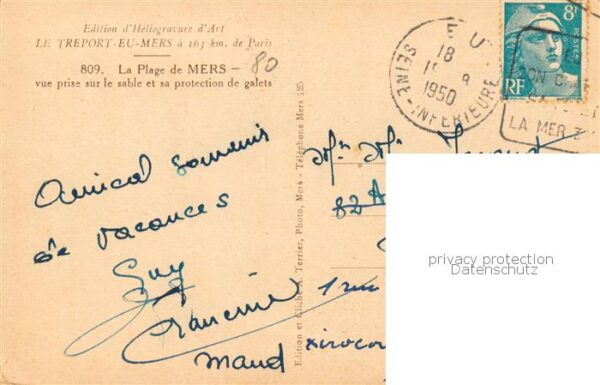 Edition d'Héliogravure d'Art
LE TREPORT-EU-MERS à 163 km. de Paris
809. La Plage de MERS - 80
vue prise sur le sable et sa protection de galets
EU
18
1950
SEINE-INFERIEURE
8F
POSTES
RF
LA MER
Amical Souvenir
de Vacances
Guy
Francine
Maud
82 A
1 rue
Edition et Cliché A. Terrier, Photo, Mers - Téléphone Mers 125
privacy protection
Datenschutz